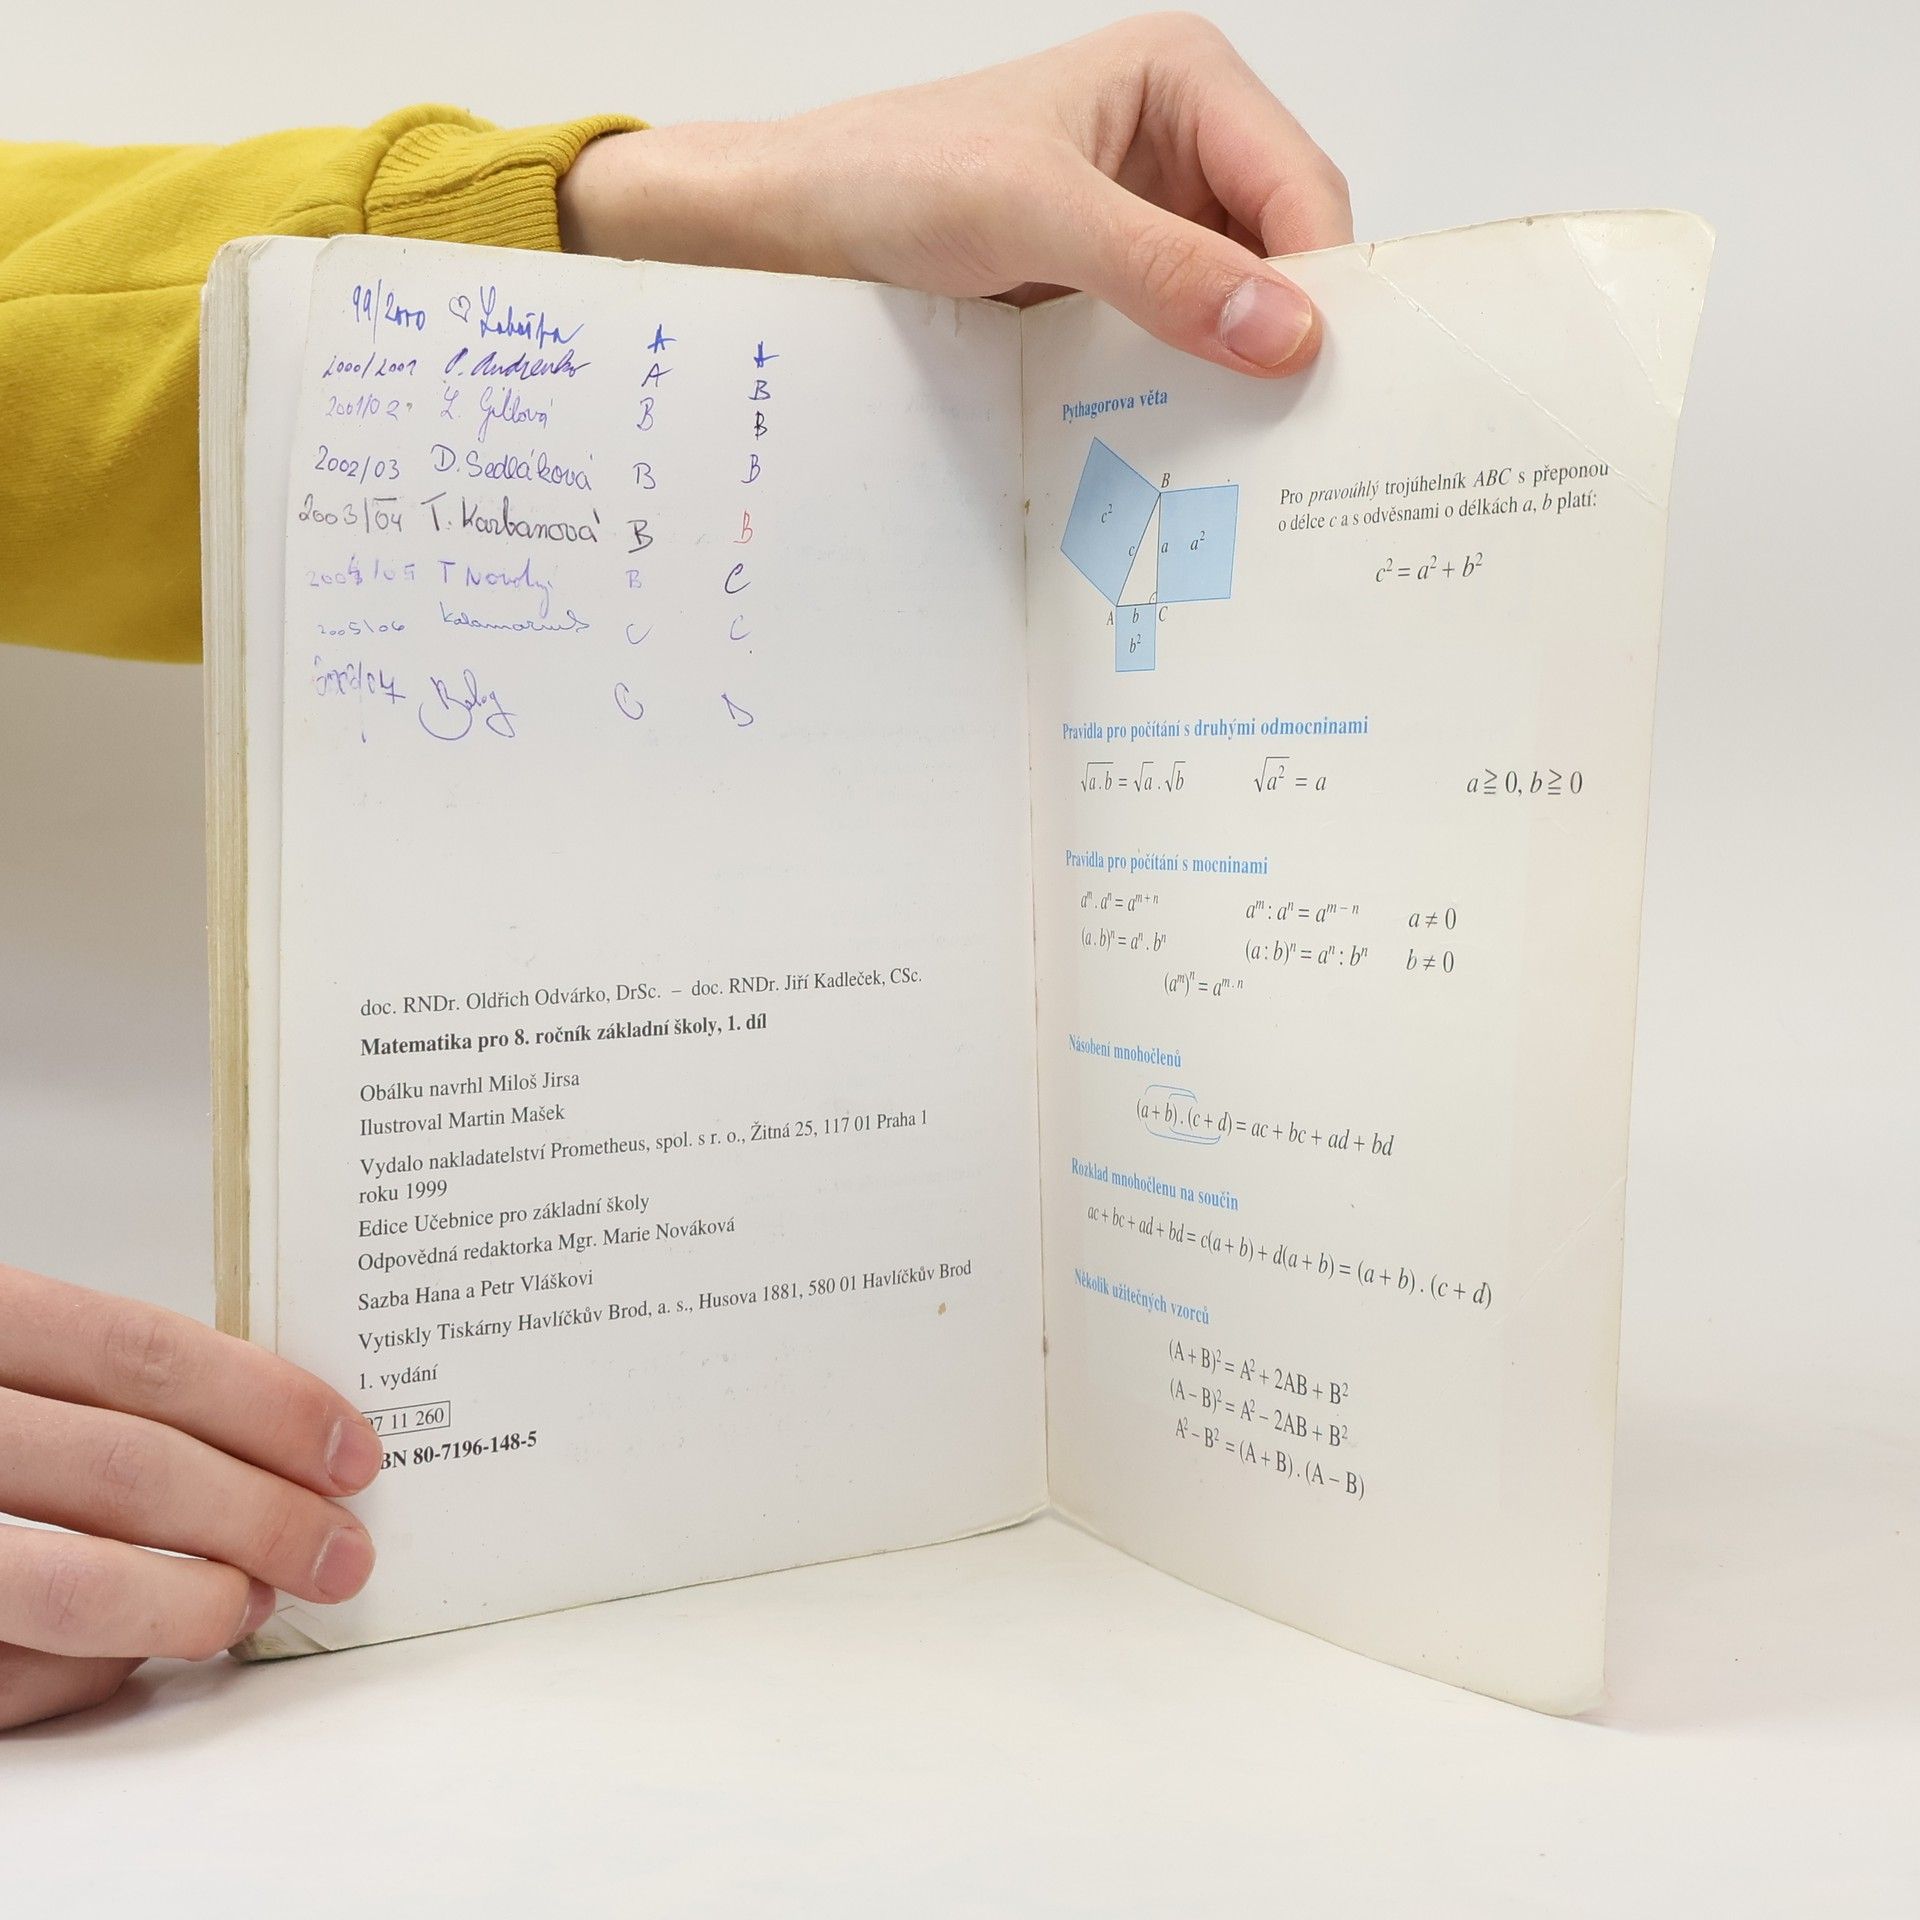 99/2000 A A
2000/2001 P. Andrenko A B
2001/02 L. Gillová B B
2002/03 D. Sedláková B B
2003/04 T. Karbanová B B
2004/05 T B C
2005/06 C C
Balog C D
doc. RNDr. Oldřich Odvárko, DrSc. – doc. RNDr. Jiří Kadleček, CSc.
Matematika pro 8. ročník základní školy, 1. díl
Obálku navrhl Miloš Jirsa
Ilustroval Martin Mašek
Vydalo nakladatelství Prometheus, spol. s r. o., Žitná 25, 117 01 Praha 1
roku 1999
Edice Učebnice pro základní školy
Odpovědná redaktorka Mgr. Marie Nováková
Sazba Hana a Petr Vláškovi
Vytiskly Tiskárny Havlíčkův Brod, a. s., Husova 1881, 580 01 Havlíčkův Brod
1. vydání
7 11 260
BN 80-7196-148-5
Pythagorova věta
B
c²
c a a²
A b C
b²
Pro pravoúhlý trojúhelník ABC s přeponou
o délce c a s odvěsnami o délkách a, b platí:
c² = a² + b²
Pravidla pro počítání s druhými odmocninami
√(a.b) = √a . √b √(a²) = a a ≧ 0, b ≧ 0
Pravidla pro počítání s mocninami
aᵐ . aⁿ = aᵐ⁺ⁿ aᵐ : aⁿ = aᵐ⁻ⁿ a ≠ 0
(a . b)ⁿ = aⁿ . bⁿ (a : b)ⁿ = aⁿ : bⁿ b ≠ 0
(aᵐ)ⁿ = aᵐ·ⁿ
Násobení mnohočlenů
(a + b) . (c + d) = ac + bc + ad + bd
Rozklad mnohočlenu na součin
ac + bc + ad + bd = c(a + b) + d(a + b) = (a + b) . (c + d)
Několik užitečných vzorců
(A + B)² = A² + 2AB + B²
(A – B)² = A² – 2AB + B²
A² – B² = (A + B) . (A – B)